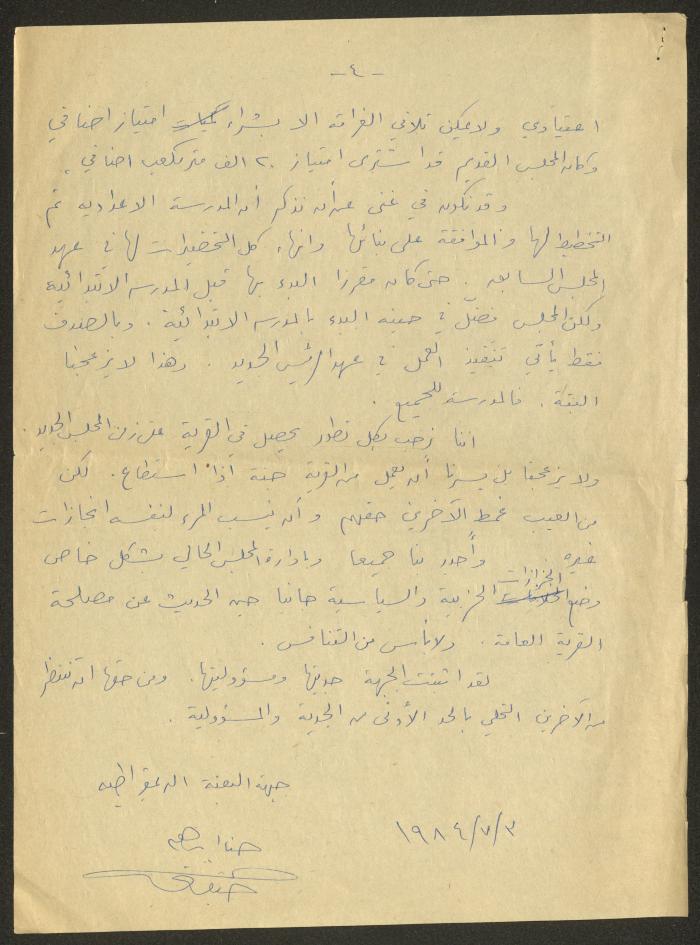 - ٤ -
اعتيادي ولا يمكن تلافي الغرامة الا بشراء امتياز اضافي
وكان المجلس القديم قد اشترى امتياز ٢٠ الف متر مكعب اضافي.
وقد نكون في غنى عن أن نذكر أن المدرسة الاعدادية تم
التخطيط لها والموافقة على بنائها وانهاء كل التحضيرات لها في عهد
المجلس السابق. حتى كان مقررا البدء بها قبل المدرسة الابتدائية
ولكن المجلس فضّل في حينه البدء بالمدرسة الابتدائية. وبالصدف
فقط يأتي تنفيذ العمل في عهد الرئيس الجديد. وهذا لا يزعجنا
البتة. فالمدرسة للجميع.
اننا نرحب بكل تطور يحصل في القرية في زمن المجلس الجديد.
ولا يزعجنا بل يسرنا أن يعمل من القرية جنة اذا استطاع. لكن
من العيب غمط الآخرين حقهم وأن ينسب المرء لنفسه انجازات
غيره وأجدر بنا جميعا وبادارة المجلس الحالي بشكل خاص
وضع الحزازات الحزبية والسياسية جانبا حين الحديث عن مصلحة
القرية العامة. ولا بأس من التنافس.
لقد اثبتت الجبهة جديتها ومسؤوليتها. ومن حقها ان تنتظر
من الآخرين التحلي بالحد الأدنى من الجدية والمسؤولية.
جبهة البعنة الديمقراطية
حنا ابراهيم
١٩٨٤/٧/٣